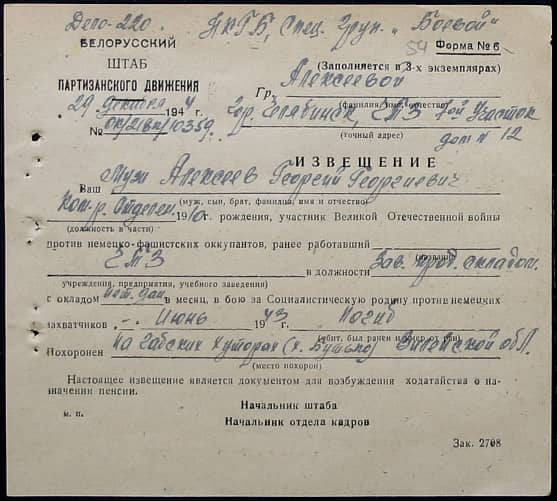 Дело-220. НКГБ, Спец. Групп. „Боевой"
БЕЛОРУССКИЙ
54 Форма № 6
ШТАБ
(Заполняется в 3-х экземплярах)
ПАРТИЗАНСКОГО ДВИЖЕНИЯ
Гр. Алексеевой
29 декабря 1944 г.
(фамилия, имя, отчество)
Гор. Челябинск, ЧМЗ 7ой Участок
№ ОК/218н/10359.
(точный адрес)
дом № 12
ИЗВЕЩЕНИЕ
Ваш Муж Алексеев Георгий Георгиевич
(муж, сын, брат, фамилия, имя и отчество)
Ком-р. Отделен. 1910 г. рождения, участник Великой Отечественной войны
(должность в части)
против немецко-фашистских оккупантов, ранее работавший
(название)
ЧМЗ в должности Зав. прод. складом.
учреждения, предприятия, учебного заведения)
с окладом нет. дан. в месяц, в бою за Социалистическую родину против немецких
захватчиков -„- Июнь 1943 Погиб
(убит, был ранен и умер от ран)
Похоронен На Габских хуторах (х. Бутько) Вилейской обл.
(место похорон)
Настоящее извещение является документом для возбуждения ходатайства о на-
значении пенсии.
Начальник штаба
м. п.
Начальник отдела кадров
Зак. 2708